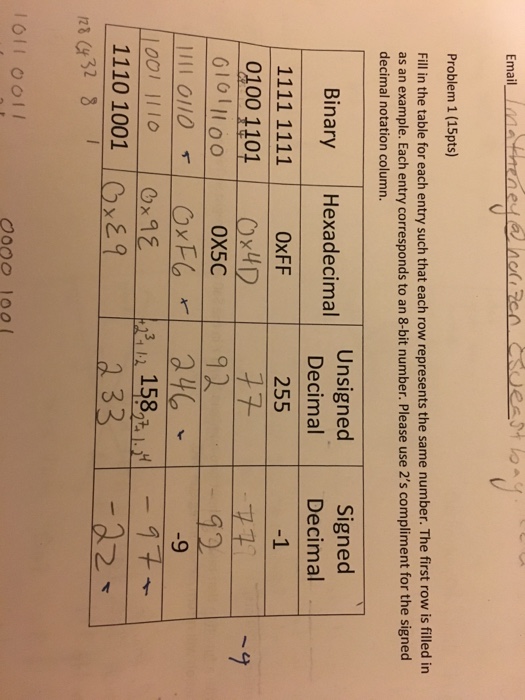 Email
Problem 1 (15pts)
Fill in the table for each entry such that each row represents the same number. The first row is filled in
as an example. Each entry corresponds to an 8-bit number. Please use 2's compliment for the signed
decimal notation column.
Binary Hexadecimal Unsigned Decimal Signed Decimal
1111 1111 0xFF 255 -1
0100 1101 0x4D 77 -77 -4
0101 1100 0X5C 92 -92
1111 0110 0xF6 246 -9
1001 1110 0x9E 158 -97
1110 1001 0xE9 233 -22
128 64 32 8 1
1011 0011
0000 1001